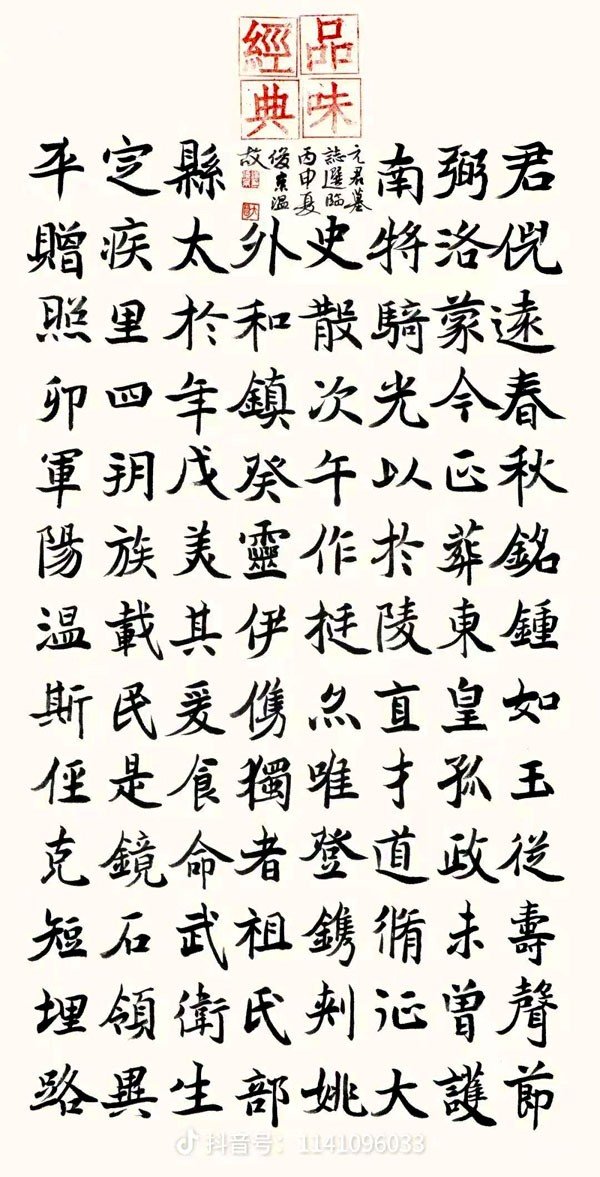 品味
經典
君侊遠春秋銘鍾如玉從壽聲節
弼洛蒙今正葬東皇孤政未曾護
南將騎光以於陵直才道脩大
史散次午作挺唯登鐫刾姚
外和鎮癸靈伊儁獨者祖氏部
縣太於年戊美其爰食命武衛生
定疾里四族載民是鏡石領異
平贈照卯軍陽温斯俓克短埋路
元君墓
誌選臨
丙申夏
抖音号：1141096033